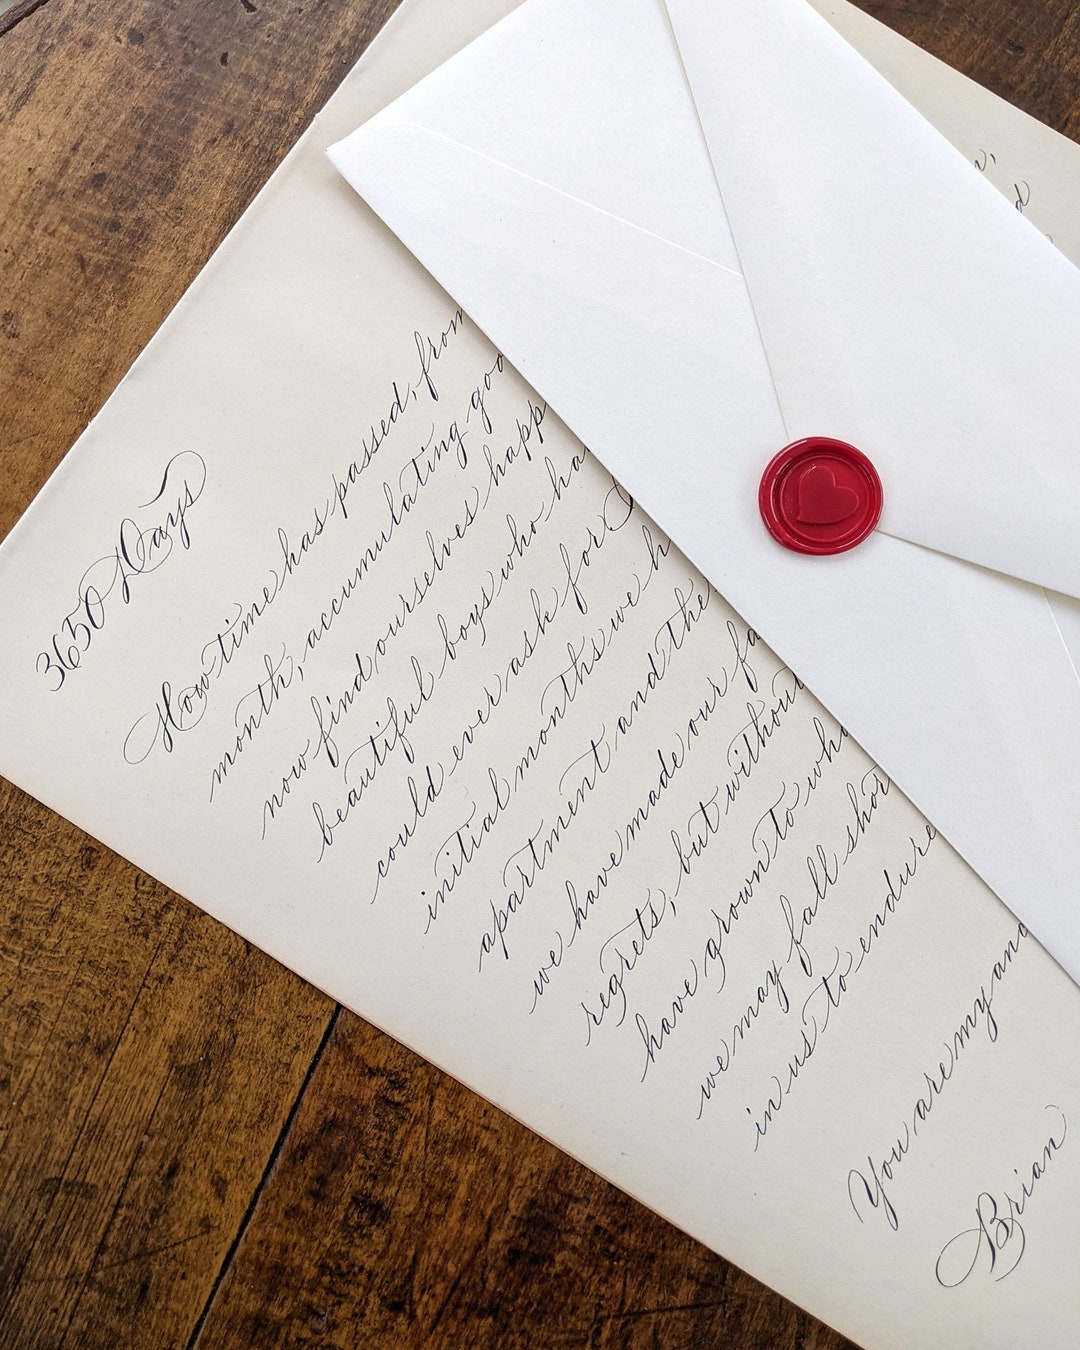 3650 Days
How time has passed, from
month, accumulating
now find ourselves
beautiful boys who
could ever ask for
initial months we
apartment and the
we have made our
regrets, but without
have grown to
we may fall
in us to endure
You are my and
Brian